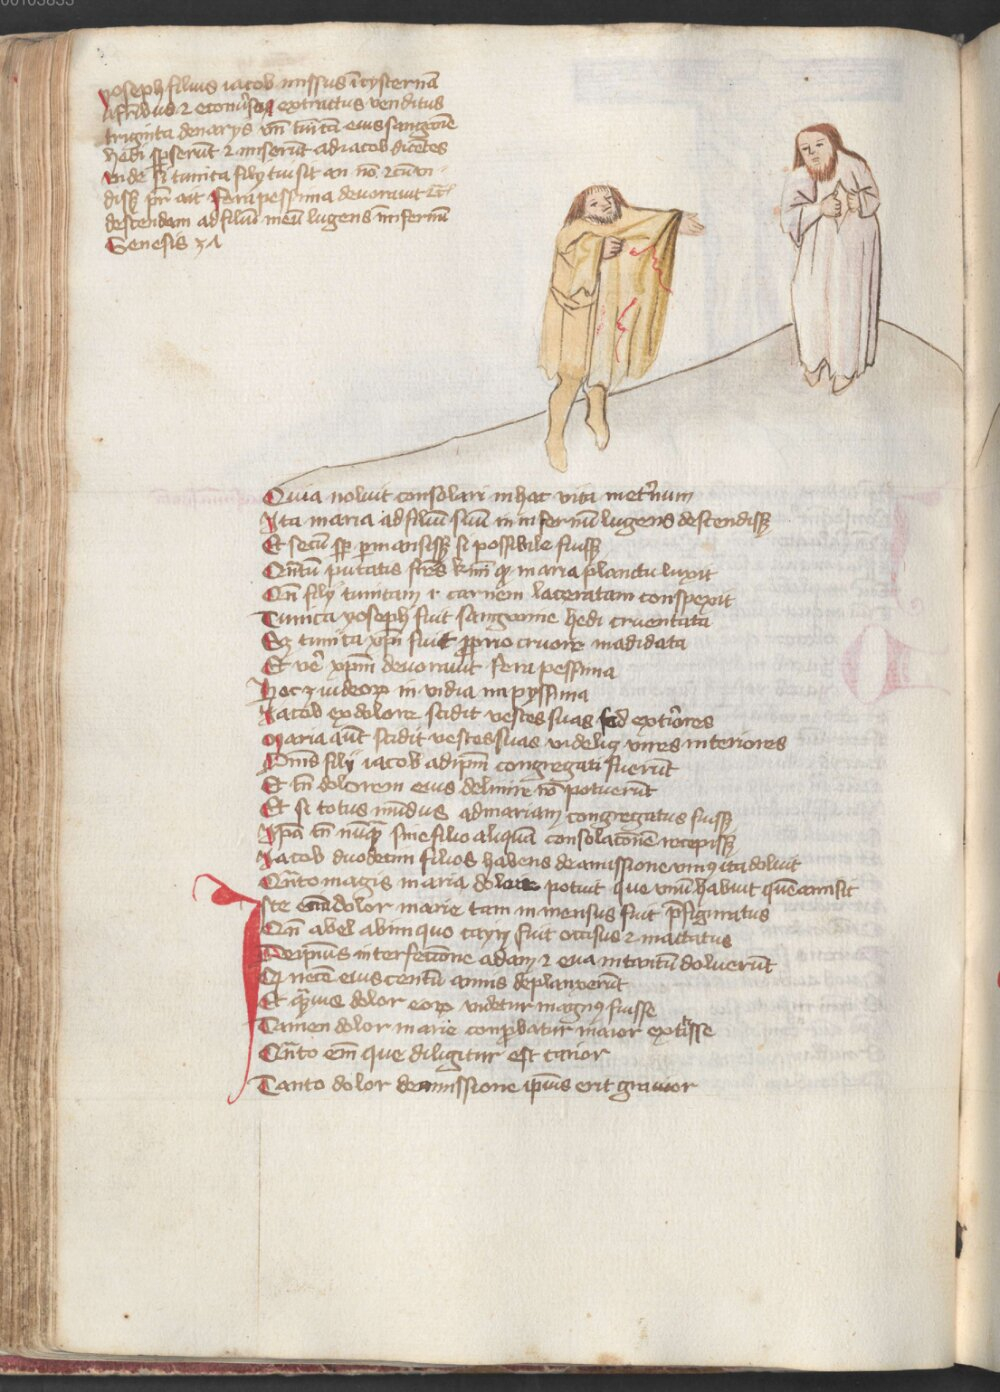 yoseph filius iacob missus ī cysternā
a frībus ⁊ extractus venditus
triginta denarys vñ tūicā eius sangwīe
hedi spserūt ⁊ miserūt ad iacob dicētes
vide si tunica fily tui sit an nō ⁊ cū vi
disꝫ pr̄ ait fera pessima devoravit
descendam ad filiū meū lugens in infernū
Genesis 37
Quia noluit consolari in hac vita in et̄num
Ita maria ad filiū suū in infernū lugens descendisꝫ
Et secū sp̄ p̄mansisꝫ si possibile fuisꝫ
Qn̄tū putatis frēs k̄mi ꝙ maria planctu luxit
Qn̄ fily tunicam ⁊ carnem laceratam conspexit
Tunica yoseph fuit sangwine hedi cruentata
Sꝫ tunica xp̄i fuit p̄prio cruore madidata
Et ve᷑ xp̄m devoravit fera pessima
Hoc ⁊ iudeoꝝ in vidia impyssima
Iacob ex dolore scidit vestes suas sed ext᷑iores
Maria aūt scidit vestes suas videlicꝫ vires interiores
Om̄s fily iacob ad ip̄m congregati fuerūt
Et tn̄ dolorem eius delinire nō potuerūt
Et si totus mūdus ad mariam congregatus fuisꝫ
Ip̄a tn̄ nūq̄ sine filio aliquā consolacōnē recepisꝫ
Iacob duodecim filios habens de amissione vniꝰ ita doluit
Qn̄to magis maria dolere potuit que vnū habuit quē amisit
Iste eciā dolor marie tam in mensus fuit p̄figuratus
Qn̄ abel ab iniquo cayn fuit occisus ⁊ mactatus
De ip̄ius interfectione adam ⁊ eva in tantū doluerūt
Q necē eius centū annis deplanxerūt
Et q̄mvis dolor eoꝝ videtur magnꝰ fuisse
Tamen dolor marie conp̄batur maior extisse
Qn̄to em̄ que diligitur est carior
Tanto dolor de amissione ip̄ius erit gravior